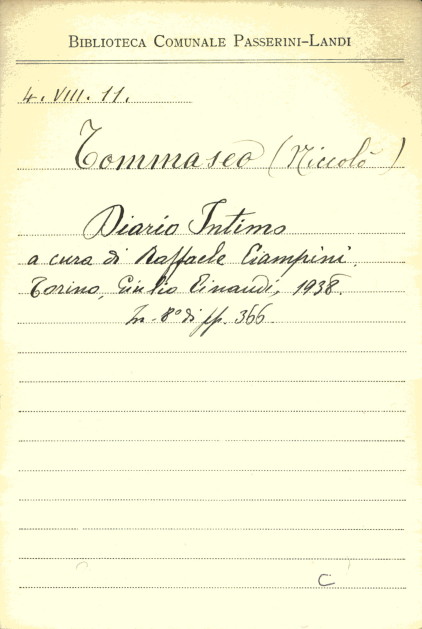 BIBLIOTECA COMUNALE PASSERINI-LANDI
4. VIII. 11.
Tommaseo (Niccolò)
Diario Intimo
a cura di Raffaele Ciampini.
Torino, Giulio Einaudi, 1938.
In-8º di pp. 366.
C